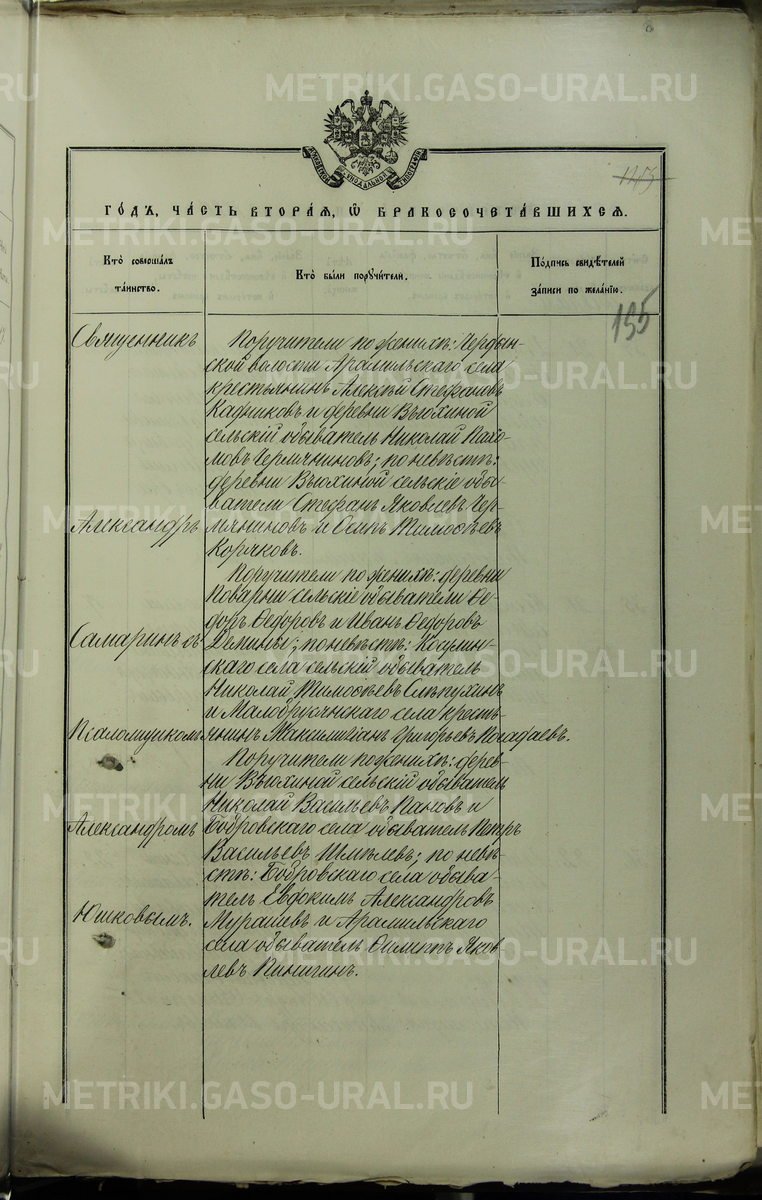 METRIKI.GASO-URAL.RU
1453
ГОДЪ, ЧАСТЬ ВТОРАЯ, Ѿ БРАКОСОЧЕТАВШИХСЯ.
Кто совершалъ таинство.
Кто были поручители.
Подпись свидѣтелей записи по желанію.
155
Священникъ
Александръ
Самаринъ съ
Псаломщикомъ
Александромъ
Юшковымъ.
Поручители по женихѣ:
ской волости Арамильскаго села
крестьянинъ Алексѣй Стефановъ
и деревни Вьюхиной
сельскій обыватель Николай Пахо-
мовъ Чермяниновъ; по невѣстѣ:
деревни Вьюхиной сельскіе обы-
ватели Стефанъ Яковлевъ Чер-
мяниновъ и Осипъ Тимоѳеевъ
Коряковъ.
Поручители по женихѣ: деревни
Поварни сельскіе обыватели Ѳе-
доръ Ѳедоровъ и Иванъ Ѳедоровъ
Демины; по невѣстѣ: Косулин-
скаго села сельскій обыватель
Николай Тимоѳеевъ Слѣпухинъ
и Малобрусянскаго села кресть-
янинъ Максимиліанъ Григорьевъ
Поручители по женихѣ: дерев-
ни Вьюхиной сельскій обыватель
Николай Васильевъ Пановъ и
Бобровскаго села обыватель Петръ
Васильевъ Шмелевъ; по невѣ-
стѣ: Бобровскаго села обыва-
тель Евдокимъ Александровъ
Мурашевъ и Арамильскаго
села обыватель Ѳилиппъ Яков
левъ Кинигинъ.